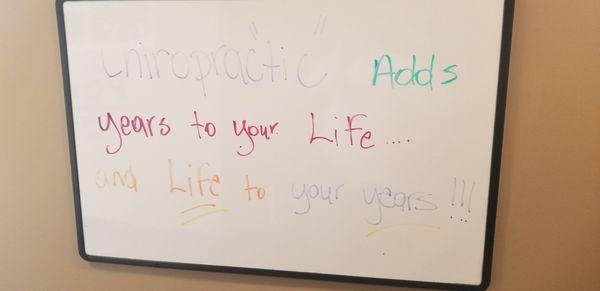 Chiropractic" Adds
years to your Life....
and Life to your years!!!